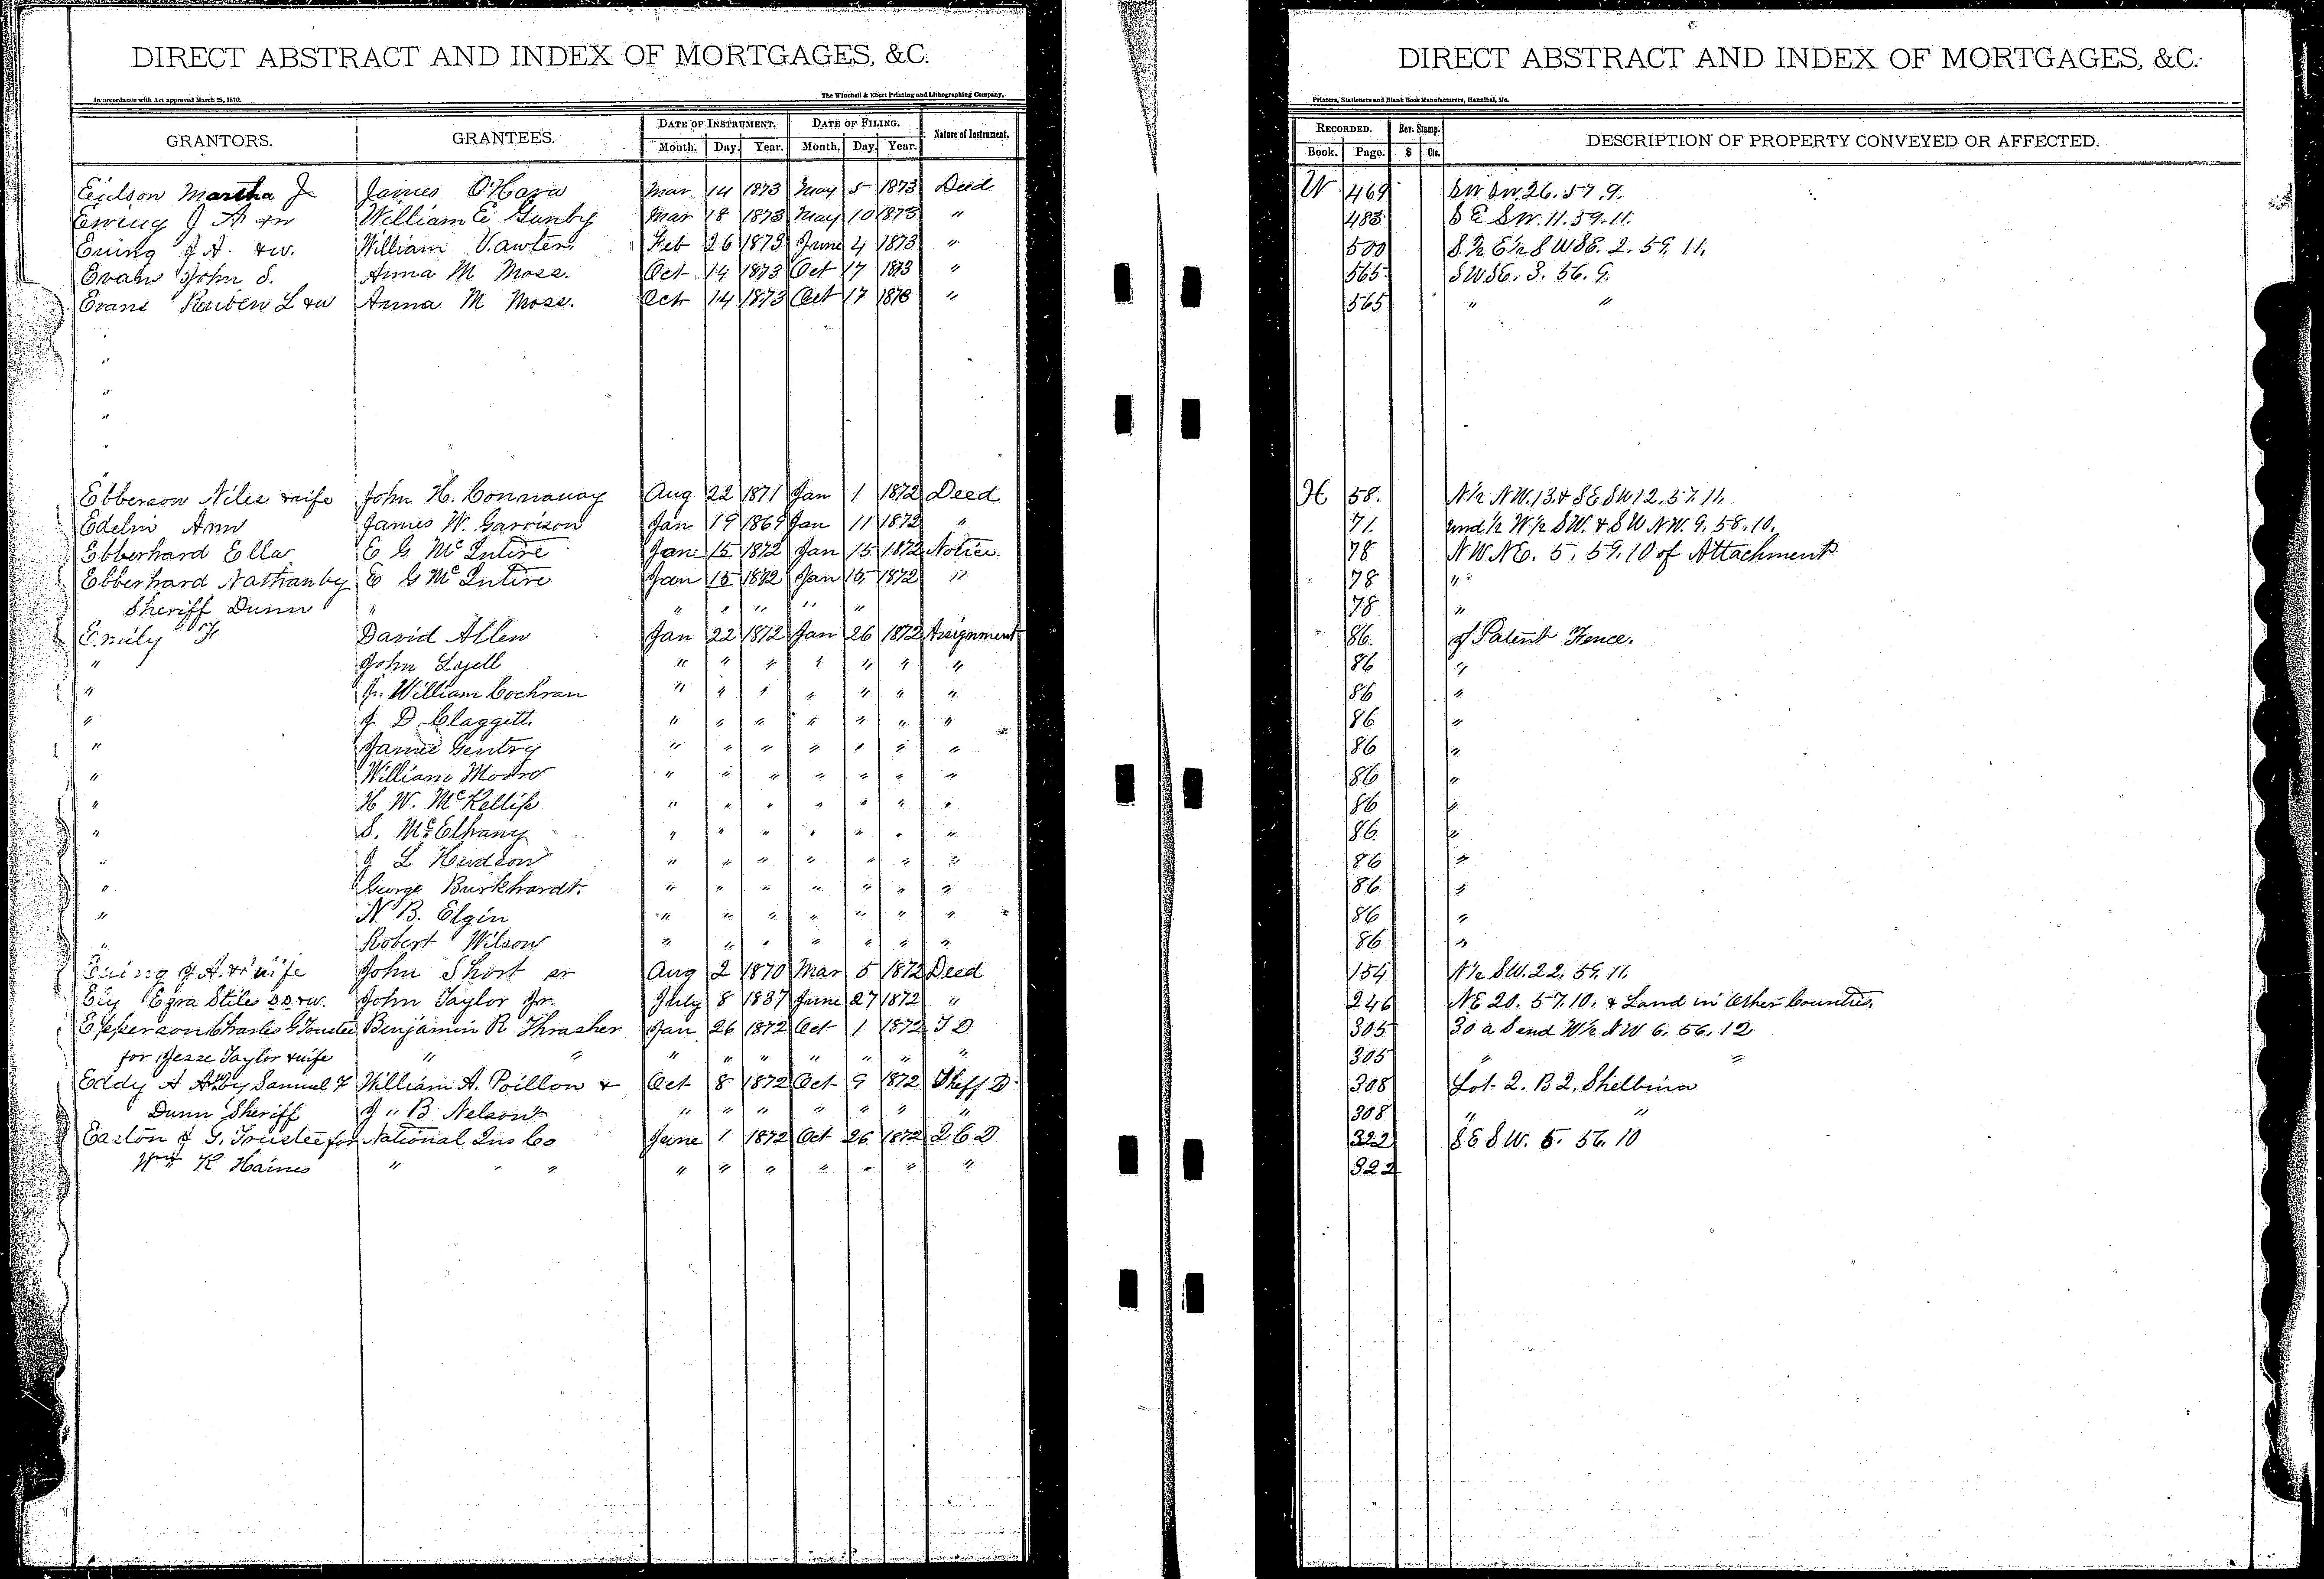 DIRECT ABSTRACT AND INDEX OF MORTGAGES, &C.
In accordance with Act approved March 25, 1870.
The Winchell & Ebert Printing and Lithographing Company,
GRANTORS. GRANTEES. DATE OF INSTRUMENT. DATE OF FILING. Nature of Instrument.
Month. Day. Year. Month. Day. Year.
Eidson Martha J James O'Hara Mar 14 1873 May 5 1873 Deed
Ewing J A &w William E Gunby Mar 18 1873 May 10 1873 "
Ewing J A. &w. William Vawter Feb 26 1873 June 4 1873 "
Evans John S. Anna M Moss. Oct 14 1873 Oct 17 1873 "
Evans Reuben L &w Anna M Moss. Oct 14 1873 Oct 17 1873 "
"
"
"
Ebberson Niles &wife John H. Connaway Aug 22 1871 Jan 1 1872 Deed
Edelin Ann James W. Garrison Jan 19 1869 Jan 11 1872 "
Ebberhard Ella E G McIntire Jan 15 1872 Jan 15 1872 Notice.
Ebberhard Nathan by E G McIntire Jan 15 1872 Jan 15 1872 "
Sheriff Dunn " " " " " "
Emily F David Allen Jan 22 1872 Jan 26 1872 Assignment
" John Lyell " " " " " " "
" J. William Cochran " " " " " " "
" J D Claggett. " " " " " " "
" James Gentry " " " " " " "
" William Moore " " " " " " "
" H. W. McKelliss " " " " " " "
" S. McElhany " " " " " " "
" J L Hudson " " " " " " "
" George Burkhardt. " " " " " " "
" N B. Elgin " " " " " " "
" Robert Wilson " " " " " " "
Ewing J A. & wife John Short sr Aug 2 1870 Mar 5 1872 Deed
Ely Ezra Stiles DD &w. John Taylor Jr. July 8 1837 June 27 1872 "
Epperson Charles G Trustee Benjamin R Thrasher Jan 26 1872 Oct 1 1872 T D
for Jesse Taylor &wife " " " " " " " " "
Eddy A A by Samuel F William A. Poillon & Oct 8 1872 Oct 9 1872 Sheff D
Dunn Sheriff J " B Nelson " " " " " " "
Easton J G. Trustee for National Ins Co June 1 1872 Oct 26 1872 2 C D
Wm K Haines " " " " " " " " " "
DIRECT ABSTRACT AND INDEX OF MORTGAGES, &C.
Printers, Stationers and Blank Book Manufacturers, Hannibal, Mo.
RECORDED. Rev. Stamp. DESCRIPTION OF PROPERTY CONVEYED OR AFFECTED.
Book. Page. $ Cts.
W 469 SW SW. 26. 57. 9.
483 S E SW. 11. 59. 11.
500 S ½ E ½ S W SE. 2. 59. 11.
565 SWSE. 3. 56. 9.
565 " "
H 58. N ½ NW. 13. & SE SW 12. 57. 11.
71. und ½ W ½ SW. & SW NW. 9. 58. 10.
78 NWNE. 5. 59. 10 of Attachment
78 "
78 "
86. of Patent Fence.
86 "
86 "
86 "
86 "
86 "
86 "
86. "
86 "
86. "
86 "
86 "
154 N ½ SW. 22. 59. 11.
246 NE 20. 57. 10. & Land in Other Counties.
305 30 a S end W ½ NW 6. 56. 12
305 " "
308 Lot 2. B 2. Shelbina
308 " "
322 S E S W. 5. 56. 10
322